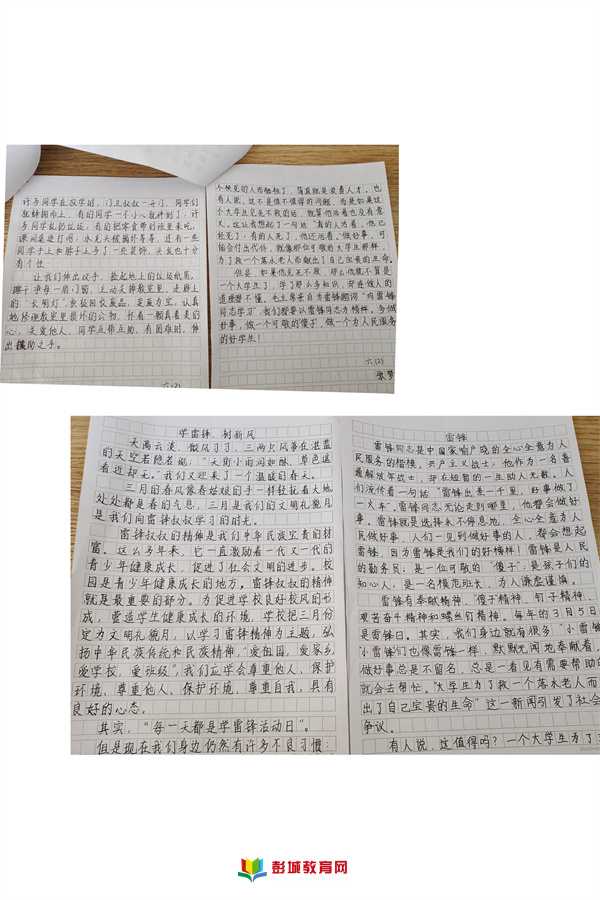 计与同学在放学时,门卫叔叔一开门,同学们
就蜂拥而上,有的同学一个小心就摔到了;计
与同学乱扔垃圾;有的把零食带到班里来吃,
课间追逐打闹;水龙头被损坏等等,还有一些
同学手上和脖子上多了一些装饰,头发也十分
有个性…
让我们伸出双手,捡起地上的垃圾纸屑,
擦干净每一扇门窗,主动关掉教室里、走廊上
的“长明灯”,积极回收废品,变废为宝,认真
地修理教室里损坏的公物,怀着一颗真善美的
心,关爱他人,同学互帮互助,有困难时,伸
出援助之手。
六(2)
个候死的人而牺牲了,简直就是浪费人才。也
有人说,这不是值不值得的问题,而是如果这
个大学生见死不救的话,就算他活着也没有意
义。这让我想起了一句话“有的人活着,他已
经死了;有的人死了,他还活着。”做好事,可
能会付出代价,就像那位可敬的大学生那样,
为了救一个落水老人而献出了自己宝贵的生命。
但是,如果他见死不救,那么他就不算是
一个大学生了,学了那么多知识,却连做人的
道理都不懂。毛主席亲自为雷锋题词“向雷锋
同志学习”,我们都要以雷锋同志为榜样。多做
好事,做一个可敬的傻子,做一个为人民服务
的好学生!
六(2)
张梦
学雷锋,树新风
天高云淡,微风习习,三两只风筝在湛蓝
的天空若隐若现,“天街小雨润如酥,草色遥
看近却无。”我们又迎来了一个温暖的春天。
三月的春风像春姑娘的手一样轻抚着大地
处处都是春的气息,三月是我们的文明礼貌月
是我们向雷锋叔叔学习的时光。
雷锋叔叔的精神是我们中华民族宝贵的财
富。这么多年来,它一直激励着一代又一代的
青少年健康成长,促进了社会文明的进步。校
园是青少年健康成长的地方,雷锋叔叔的精神
就是最重要的部分。为促进学校良好校风的形
成,营造学生健康成长的环境,学校把三月份
定为文明礼貌月,以学习雷锋精神为主题,弘
扬中华民族传统和民族精神,“爱祖国,爱家乡,
爱学校,爱班级”,我们应学会尊重他人、保护
环境、尊重他人、保护环境、尊重自我,具有
良好的心态。
其实,“每一天都是学雷锋活动日”。
但是现在我们身边仍然有许多不良习惯:
雷锋
雷锋同志是中国家喻户晓的全心全意为人
民服务的楷模,共产主义战士;他作为一名普
通解放军战士,却在短暂的一生助人无数。人
们流传着一句话“雷锋出差一千里,好事做了
一火车”。雷锋同志无论走到哪里,他都会做好
事。雷锋就是选择永不停息地,全心全意为人
民做好事,人们一见到做好事的人,都会想起
雷锋,因为雷锋是我们的好榜样!雷锋是人民
的勤务员;是一位可敬的“傻子”;是孩子们的
知心人;是一名模范班长,为人谦虚谨慎。
雷锋有奉献精神、傻子精神、钉子精神、
艰苦奋斗精神和螺丝钉精神。每年的3月5日
是雷锋日。其实,我们身边就有很多“小雷锋
“小雷锋们也像雷锋一样,默默无闻地奉献着,
做好事总是不留名,总是一看见有需要帮助的
就会去帮忙。“大学生为了救一个落水老人而
出了自己宝贵的生命”这一新闻引发了社会
争议。
有人说,这值得吗?一个大学生为了
彭城教育网